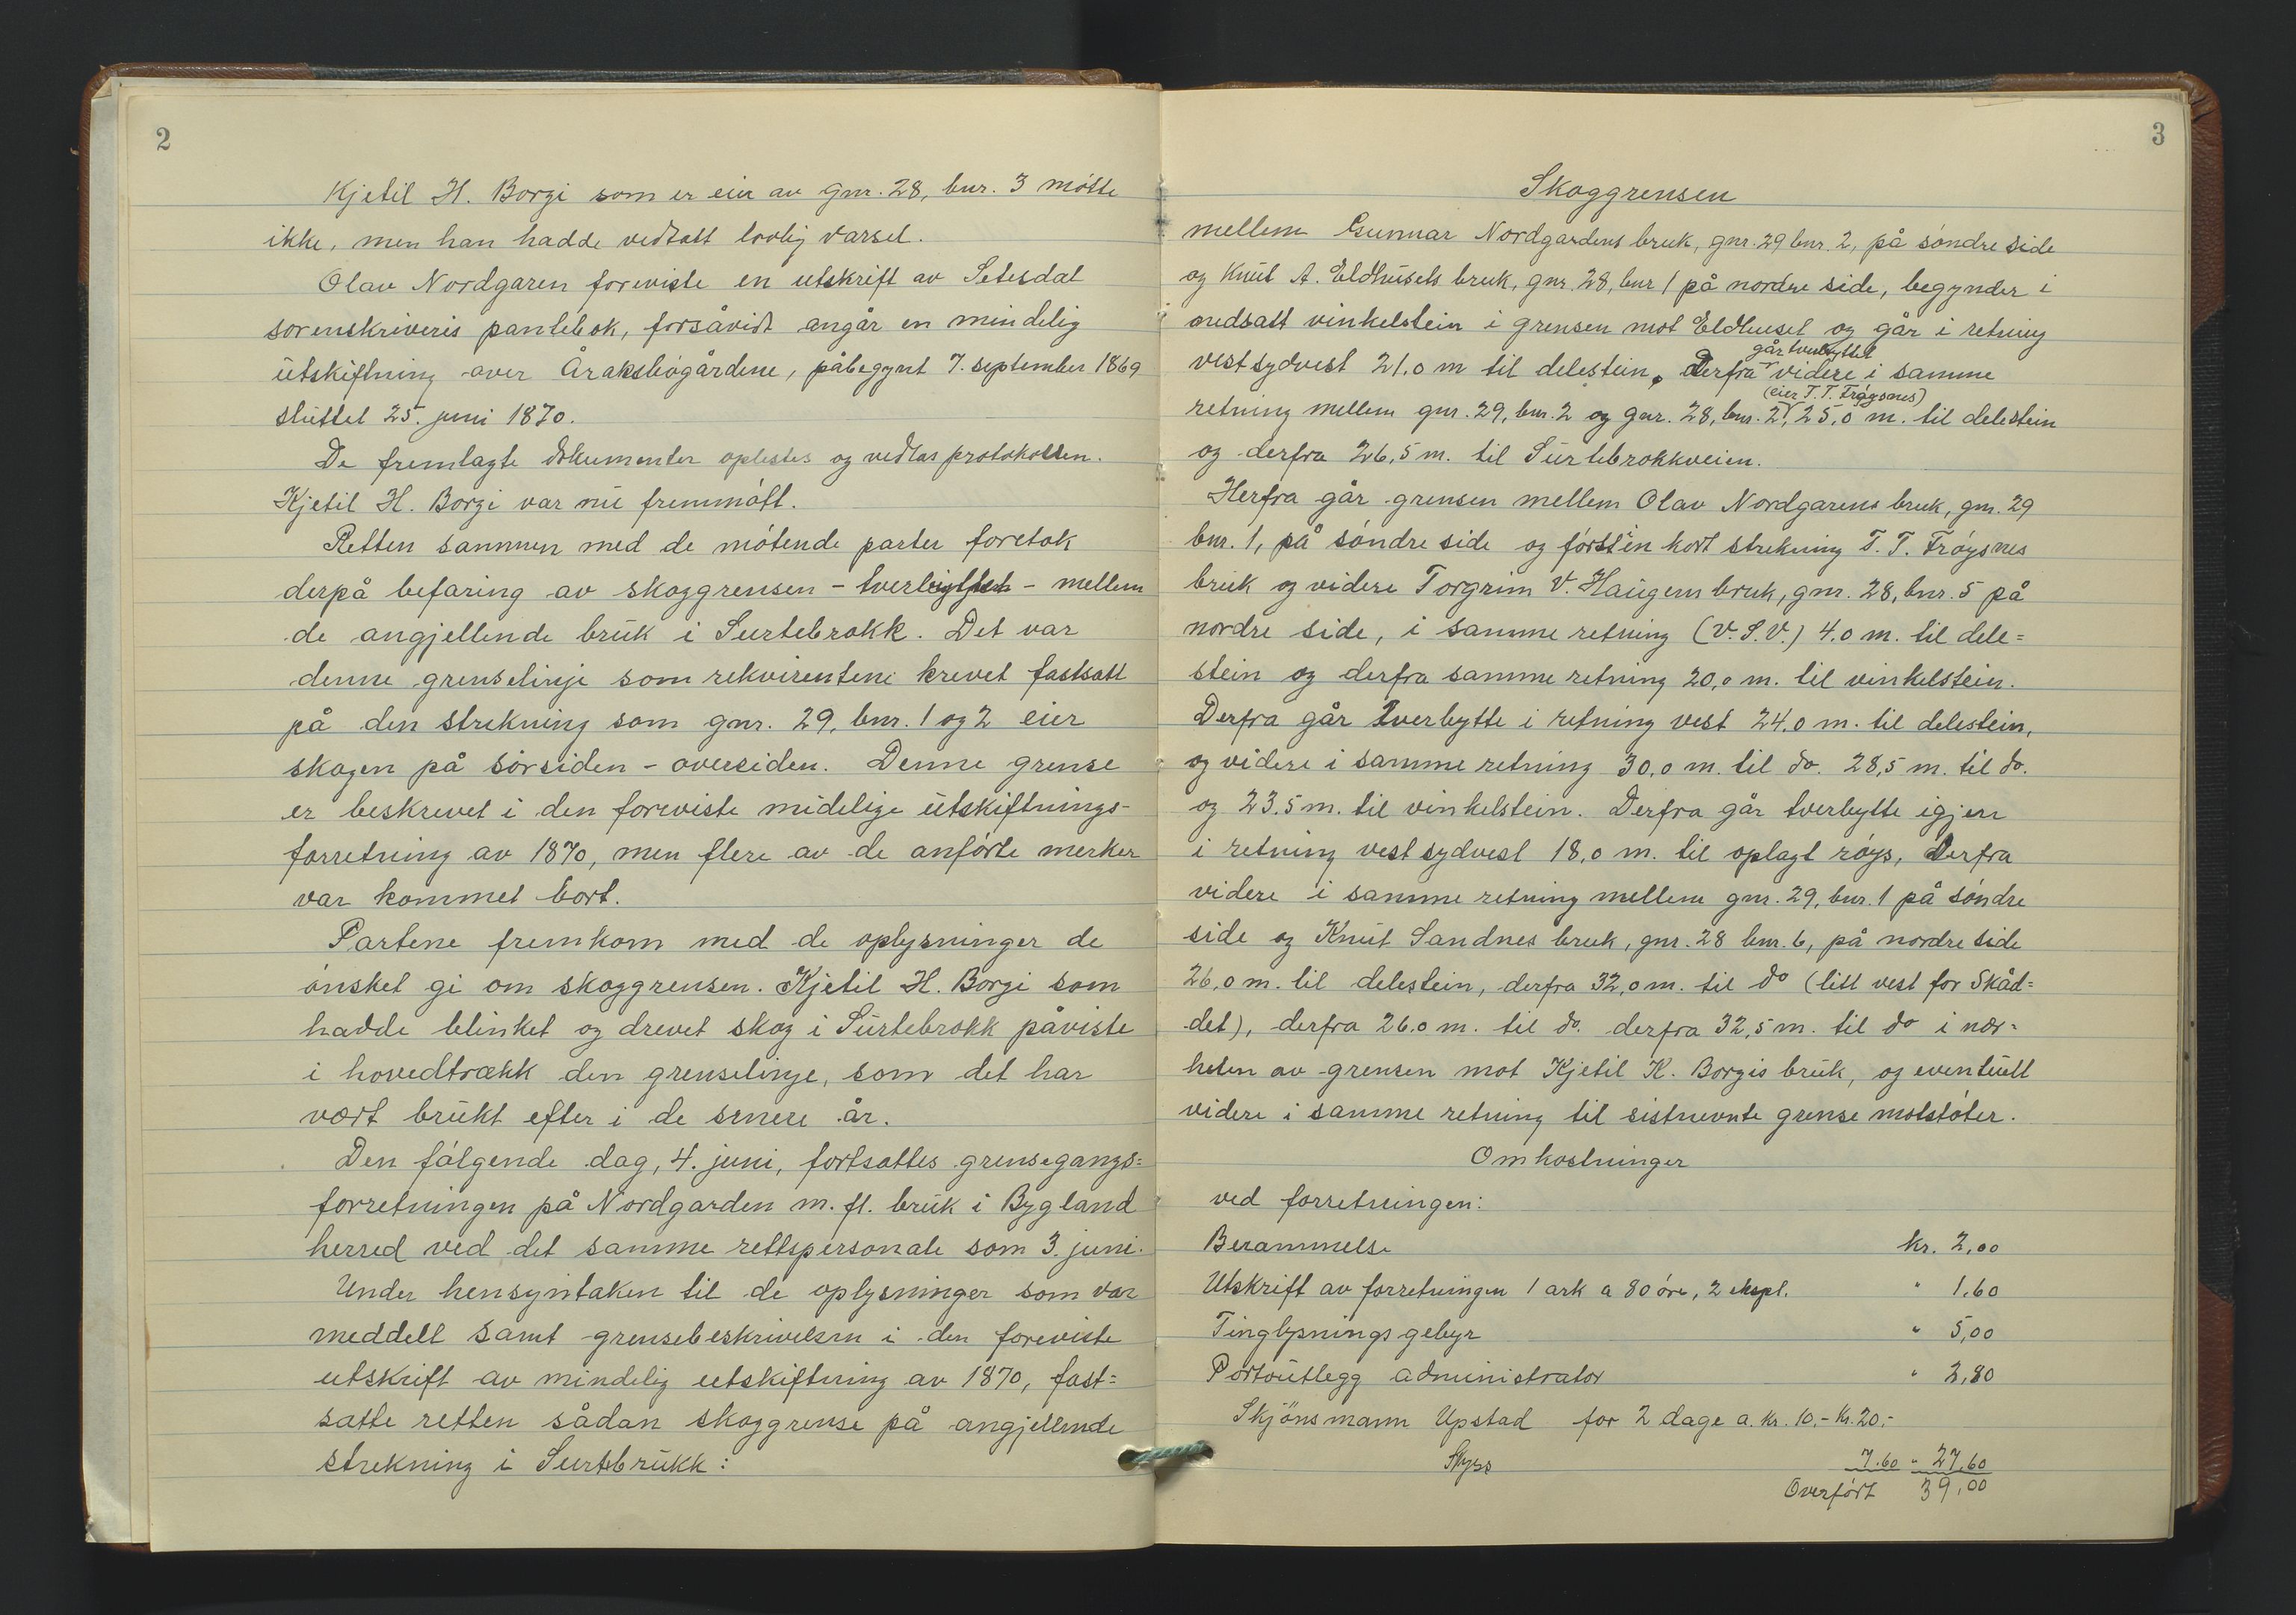 2
Kjetil H. Borgi som er eier av gnr. 28, bnr. 3 møtte
ikke, men han hadde vedtatt lovlig varsel.
Olav Nordgaren foreviste en utskrift av Setesdal
sorenskriveris pantebok, forsåvidt angår en mindelig
utskiftning over Åraksbøgårdene, påbegynt 7. september 1869
sluttet 25. juni 1870.
De fremlagte dokumenter oplestes og vedlas protokollen.
Kjetil H. Borgi var nu fremmøtt.
Retten sammen med de møtende parter foretok
derpå befaring av skoggrensen - tverbyttet - mellem
de angjellende bruk i Surtebrokk. Det var
denne grenselinje som rekvirentene krevet fastsatt
på den strekning som gnr. 29, bnr. 1 og 2 eier
skogen på sørsiden - oversiden. Denne grense
er beskrevet i den foreviste midelige utskiftnings-
forretning av 1870, men flere av de anførte merker
var kommet bort.
Partene fremkom med de oplysninger de
ønsket gi om skoggrensen. Kjetil H. Borgi som
hadde blinket og drevet skog i Surtebrokk påviste
i hovedtrækk den grenselinje, som det har
vært brukt efter i de senere år.
Den følgende dag, 4. juni, fortsattes grensegangs=
forretningen på Nordgarden m. fl. bruk i Bygland
herred ved det samme rettspersonale som 3. juni.
Under hensyntaken til de oplysninger som var
meddelt samt grensebeskrivelsen i den foreviste
utskrift av mindelig utskiftning av 1870, fast=
satte retten sådan skoggrense på angjellende
strekning i Surtebrukk:
3
Skoggrensen
mellem Gunnar Nordgardens bruk, gnr. 29 bnr. 2, på søndre side
og Knut A. Eldhusets bruk, gnr. 28, bnr 1 på nordre side, begynder i
nedsatt vinkelstein i grensen mot Eldhuset og går i retning
går tverbyttet
vestsydvest 21.0 m til delestein. Derfra videre i samme
(eier T. T. Frøysnes)
retning mellem gnr. 29, bnr. 2 og gnr. 28, bnr. 2, 25,0 m. til delestein
og derfra 26,5 m. til Surtebrokkveien.
Herfra går grensen mellem Olav Nordgarens bruk, gnr. 29
bnr. 1, på søndre side og først en kort strekning T. T. Frøysnes
bruk og videre Torgrim V. Haugens bruk, gnr. 28, bnr. 5 på
nordre side, i samme retning (V.S.V.) 4.0 m. til dele=
stein og derfra samme retning 20,0 m. til vinkelstein.
Derfra går tverbytte i retning vest 24.0 m. til delestein,
og videre i samme retning 30,0 m. til do. 28,5 m. til do.
og 23.5 m. til vinkelstein. Derfra går tverbytte igjen
i retning vestsydvest 18,0 m. til oplagt røys, Derfra
videre i samme retning mellem gnr. 29, bnr. 1 på søndre
side og Knut Sandnes bruk, gnr. 28 bnr. 6, på nordre side
26,0 m. til delestein, derfra 32,0 m. til do (litt vest for Skåd=
det), derfra 26.0 m. til do. derfra 32,5 m. til do i nær=
heten av grensen mot Kjetil K. Borgis bruk, og eventuelt
videre i samme retning til sistnevnte grense motstøter.
Omkostninger
ved forretningen:
Berammelse kr. 2,00
Utskrift av forretningen 1 ark a 80 øre, 2 ekspl. " 1.60
Tinglysningsgebyr " 5,00
Portoutlegg administrator " 2,80
Skjönsmann Upstad for 2 dage a. kr. 10.- Kr. 20.-
Skyss 7.60 " 27,60
Overført 39,00